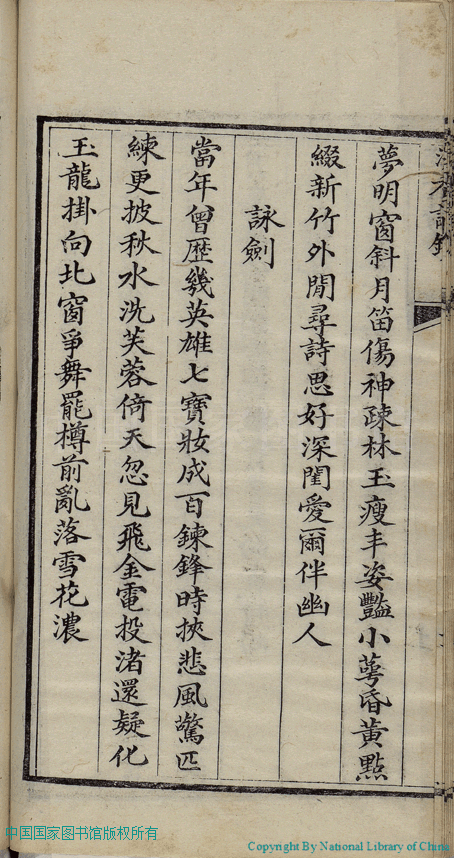 夢明窗斜月笛傷神疎林玉瘦丰姿豔小萼昏黃點
綴新竹外閒尋詩思好深閨愛爾伴幽人
詠劍
當年曾歷幾英雄七寶妝成百鍊鋒時挾悲風驚匹
練更披秋水洗芙蓉倚天忽見飛金電投渚還疑化
玉龍掛向北窗爭舞罷樽前亂落雪花濃
中国国家图书馆版权所有
Copyright By National Library of China